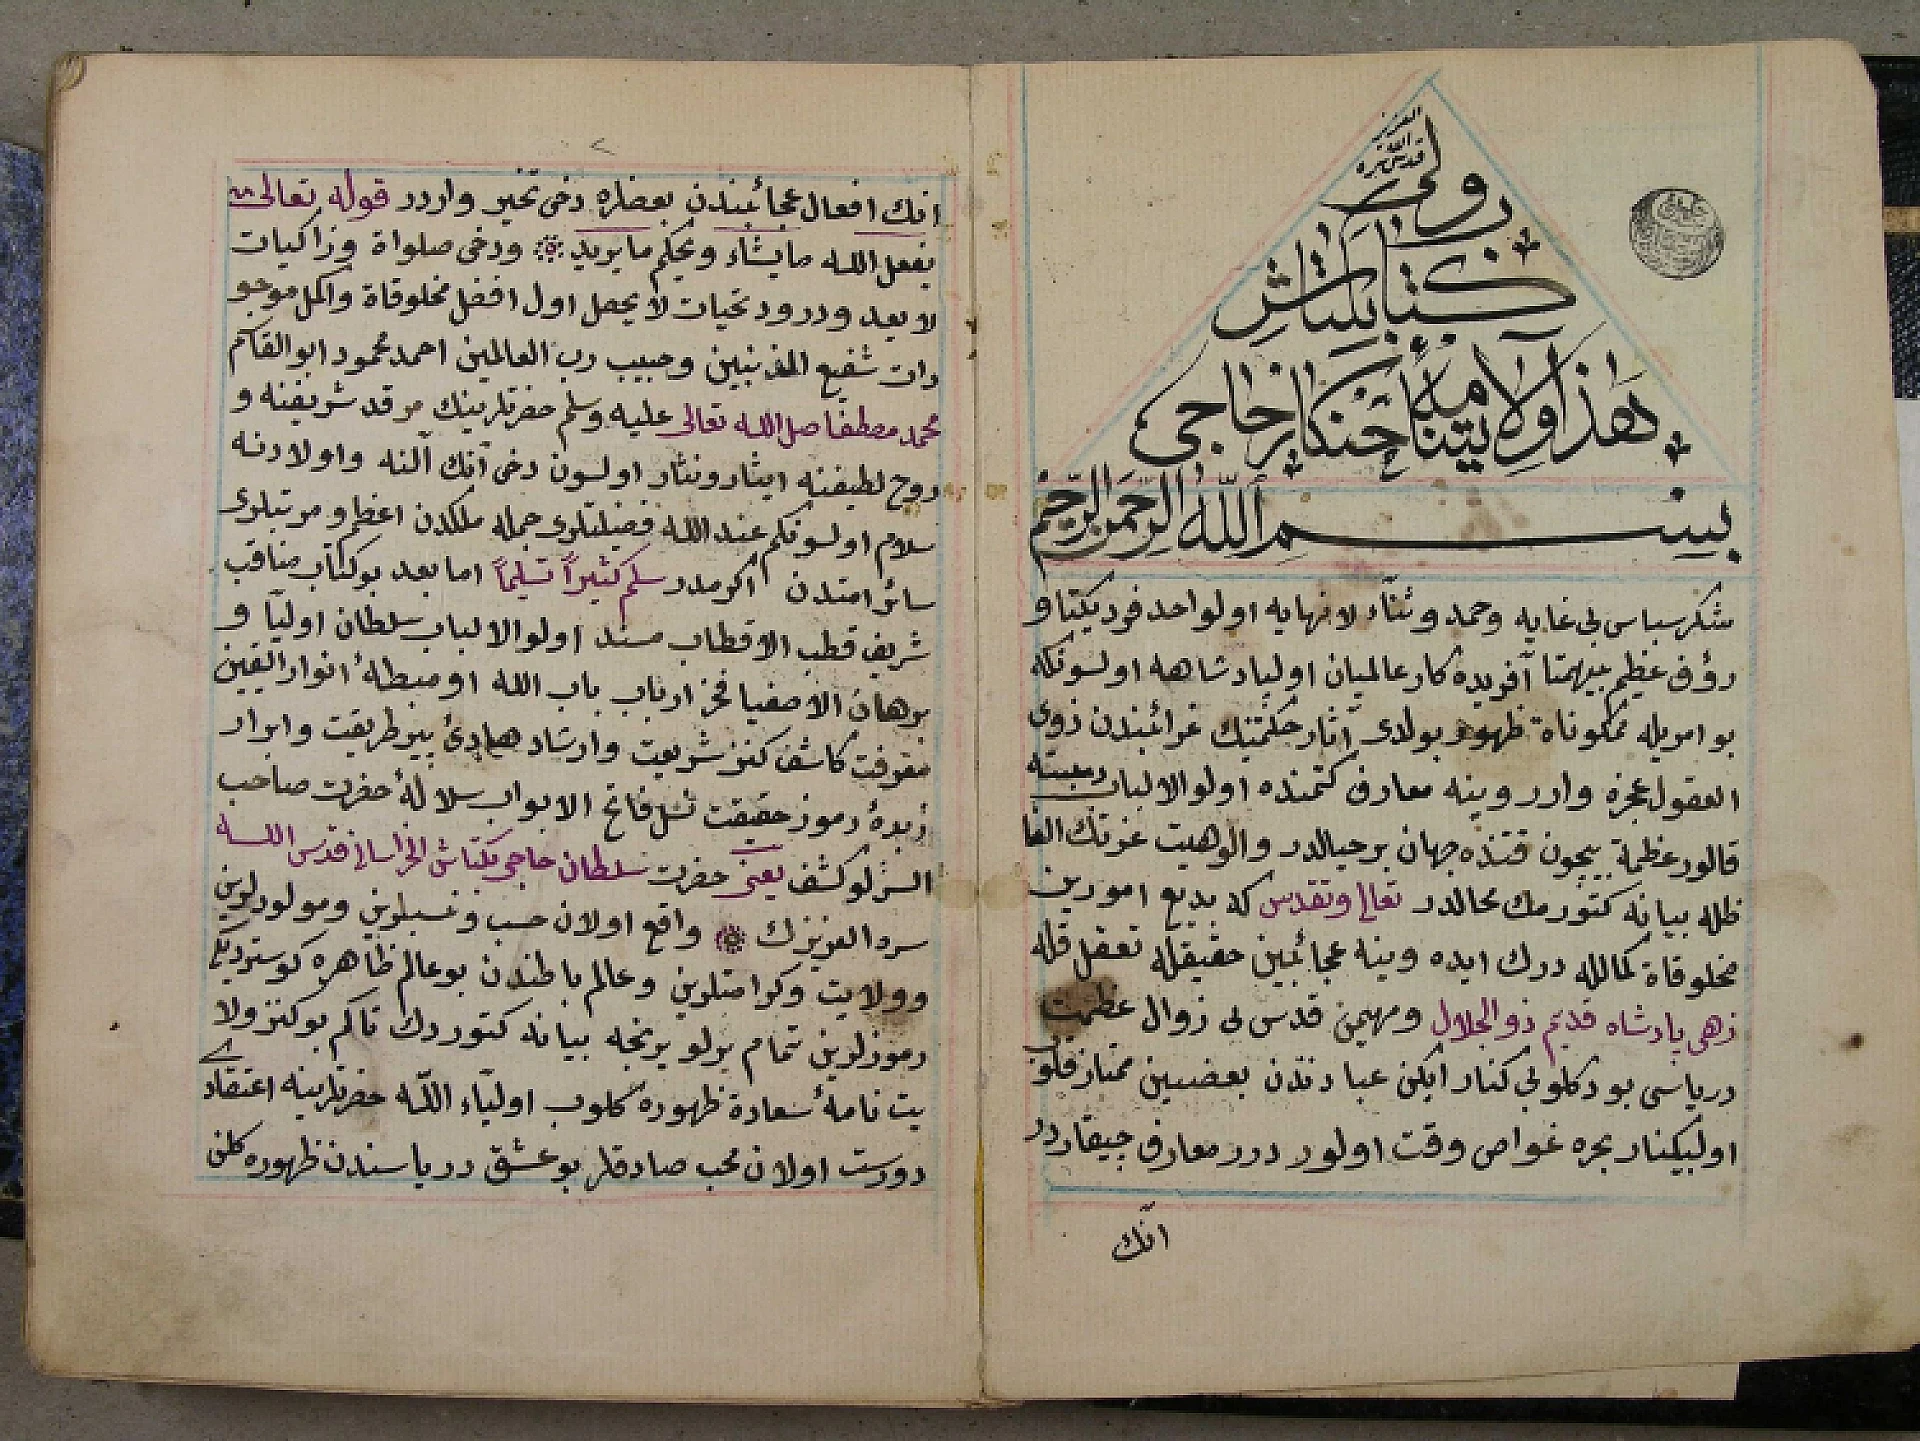 العزيز
قدس الله سره
ولى
كتاب بكتاش
هذا ولايتنامهٔ خنكار حاجى
بسم الله الرحمن الرحيم
شكر سباس بى غايه وحمد وثناء لا نهايه اولواحد فرد يكتا و
رؤف عظيم بيهمتا آفريده كار عالميان اولپادشاهه اولسونكه
بو امريله مكوناة ظهور بولدى آثار حكمتنك غرائبندن ذوى
العقول عجزه وارر وينه معارف كتمنده اولو الالباب
قالور عظمة بيچون قتنده جهان بر خيالدر والوهيت عزتك الفا
ظله بيانه كتورمك محالدر تعالى وتقدس كه بديع امورين
مخلوقاة كمالله درك ايده وينه عجائبين حقيقله تعقل قله
زهى پادشاه قديم ذو الجلال ومهيمن قدس بى زوال عظمت
درياسى بودكلوبى كنار ايكن عبادندن بعضيسين ممتاز قلوب
اولبيكنار بحره غواص وقت اولور درر معارف چيقاردر
انك
٢
انك افعال عجائبندن بعضلره دخى تخير واردر قوله تعالى
يفعل الله ما يشاء ويحكم ما يريد ودخى صلواة وزاكيات
لا يعد ودرود تحيات لا يحصل اول افضل مخلوقاة واكمل موجو
دات شفيع المذنبين وحبيب رب العالمين احمد محمود ابو القاسم
محمد مصطفا صل الله تعالى عليه وسلم حضرتلرينك مرقد شريفنه و
روح لطيفنه ايثار ونثار اولسون دخى آنك آلنه واولادنه
سلام اولسونكم عند الله فضيلتلرى جمله ملكدن اعظم ومرتبلرى
سائر امتدن اكرمدر سلم كثيراً تسليماً اما بعد بو كتاب مناقب
شريف قطب الاقطاب مسند اولو الالباب سلطان اوليا و
برهان الاصفيا فخر ارباب باب الله اومبطهٔ انوار اليقين
معرفت كاشف كنز شريعت وارشاد هادئ پير طريقت وابرار
زبدهٔ رموز حقيقت نسل فاتح الابواب سلالهٔ حضرت صاحب
السر لو كشف يعنى حضرت سلطان حاجى بكتاش الخراسانى قدس الله
سره العزيزك واقع اولان حسب ونسبلرين ومولودلرين
وولايت وكرامتلرين وعالم باطندن بو عالم ظاهره كوستردیكى
رموزلرين تمام برلو يرنجه بيانه كتوردك تاكم بو كنز ولا
يت نامهٔ سعادة ظهوره كلوب اولياء الله حضرتلرينه اعتقادى
دورست اولان محب صادقلر بو عشق درياسندن ظهوره كلن